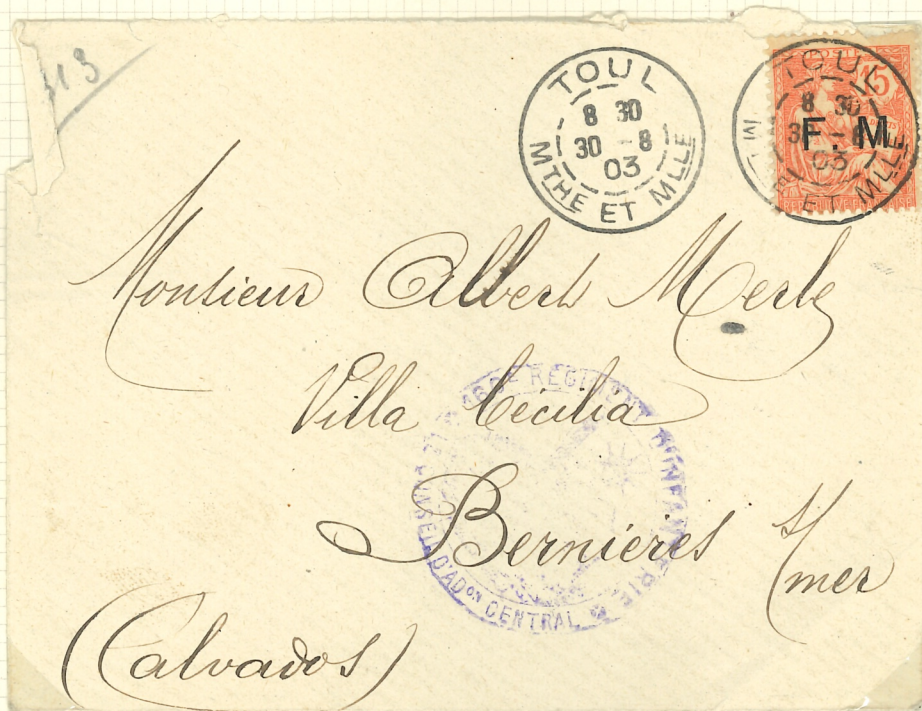 313
TOUL
8 30
30 - 8
03
MTHE ET MLLE
TOUL
15
8 30
F. M.
03
ET MLLE
Monsieur Albert Merle
Villa Cécilia
Bernières s/mer
(Calvados)
RÉGIMENT D'INFANTERIE
CONSEIL D'ADON CENTRAL